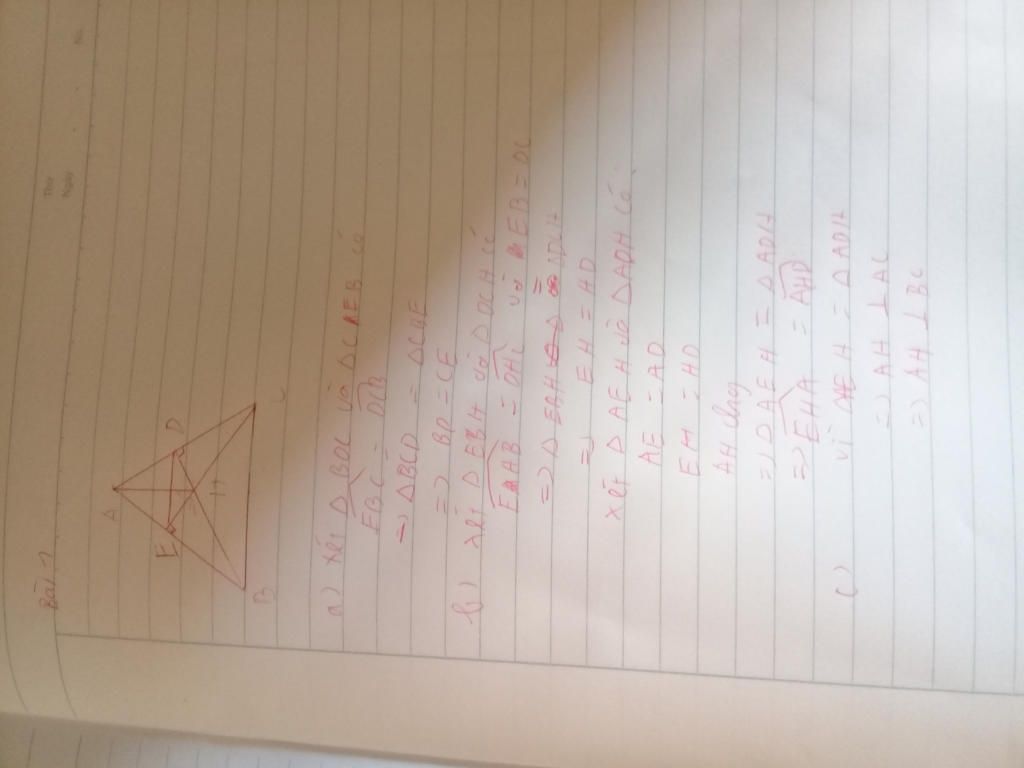 Thứ
Ngày
No.
Bài 1
A
E
D
H
B
C
a) xét Δ BDC và Δ CAEB có
EBC = DCB
=> ΔBCD = ΔCBE
=> BD = CE
b) xét Δ EBH và Δ DCH có
EHB = DHC và EB = DC
=> Δ EBH = ΔDCH
=> EH = HD
xét Δ AEH và Δ ADH có
AE = AD
EH = HD
AH chung
=> Δ AEH = Δ ADH
=> EHA = AHD
c) vì ΔAEH = Δ ADH
=> AH ⊥ AC
=> AH ⊥ BC